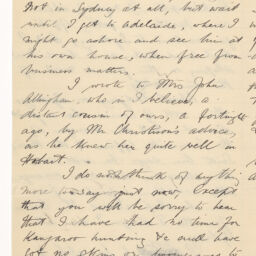 Not in Sydney at all, but wait
until I get to Adelaide, where I
might go ashore and see him at
his own house, when free from
business matters.
I wrote to Mrs John
Allingham, who is I believe, a
distant cousin of ours, a fortnight
ago, by Mr Christison's advice,
as he knew her quite well in
Hobart.
I do not think of anything
more to say just now, except
that you will be sorry to hear
that I have had no time for
Kangaroo hunting &c and have
got no skins or